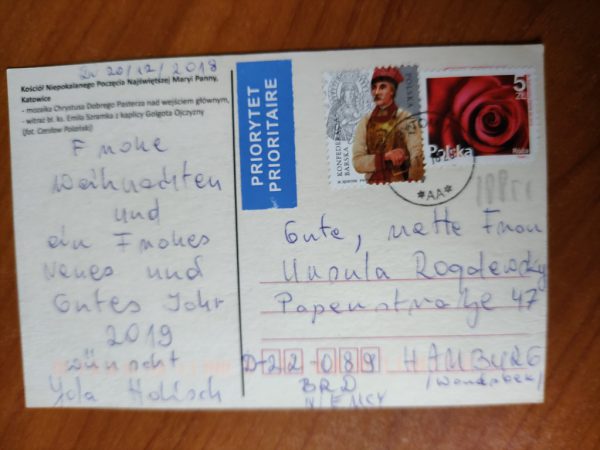 Dn 20/12/2018
Kościół Niepokalanego Poczęcia Najświętszej Maryi Panny,
Katowice
- mozaika Chrystusa Dobrego Pasterza nad wejściem głównym,
- witraż bł. ks. Emila Szramka z kaplicy Golgota Ojczyzny
(fot. Czesław Polański)
Frohe
Weihnachten
und
ein Frohes
Neues und
Gutes Jahr
2019
wünscht
Jola
PRIORYTET
PRIORITAIRE
KONFEDERACJA
BARSKA
POLSKA
5 ZŁ
Polska
Róża
*AA*
Gute, nette Frau
Ursula
Papenstraße 47
D-22-089 HAMBURG
BRD (Wandsbek)
NIEMCY